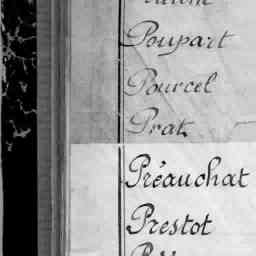 Poupart
Pourcel
Prat
Préauchat
Prestot